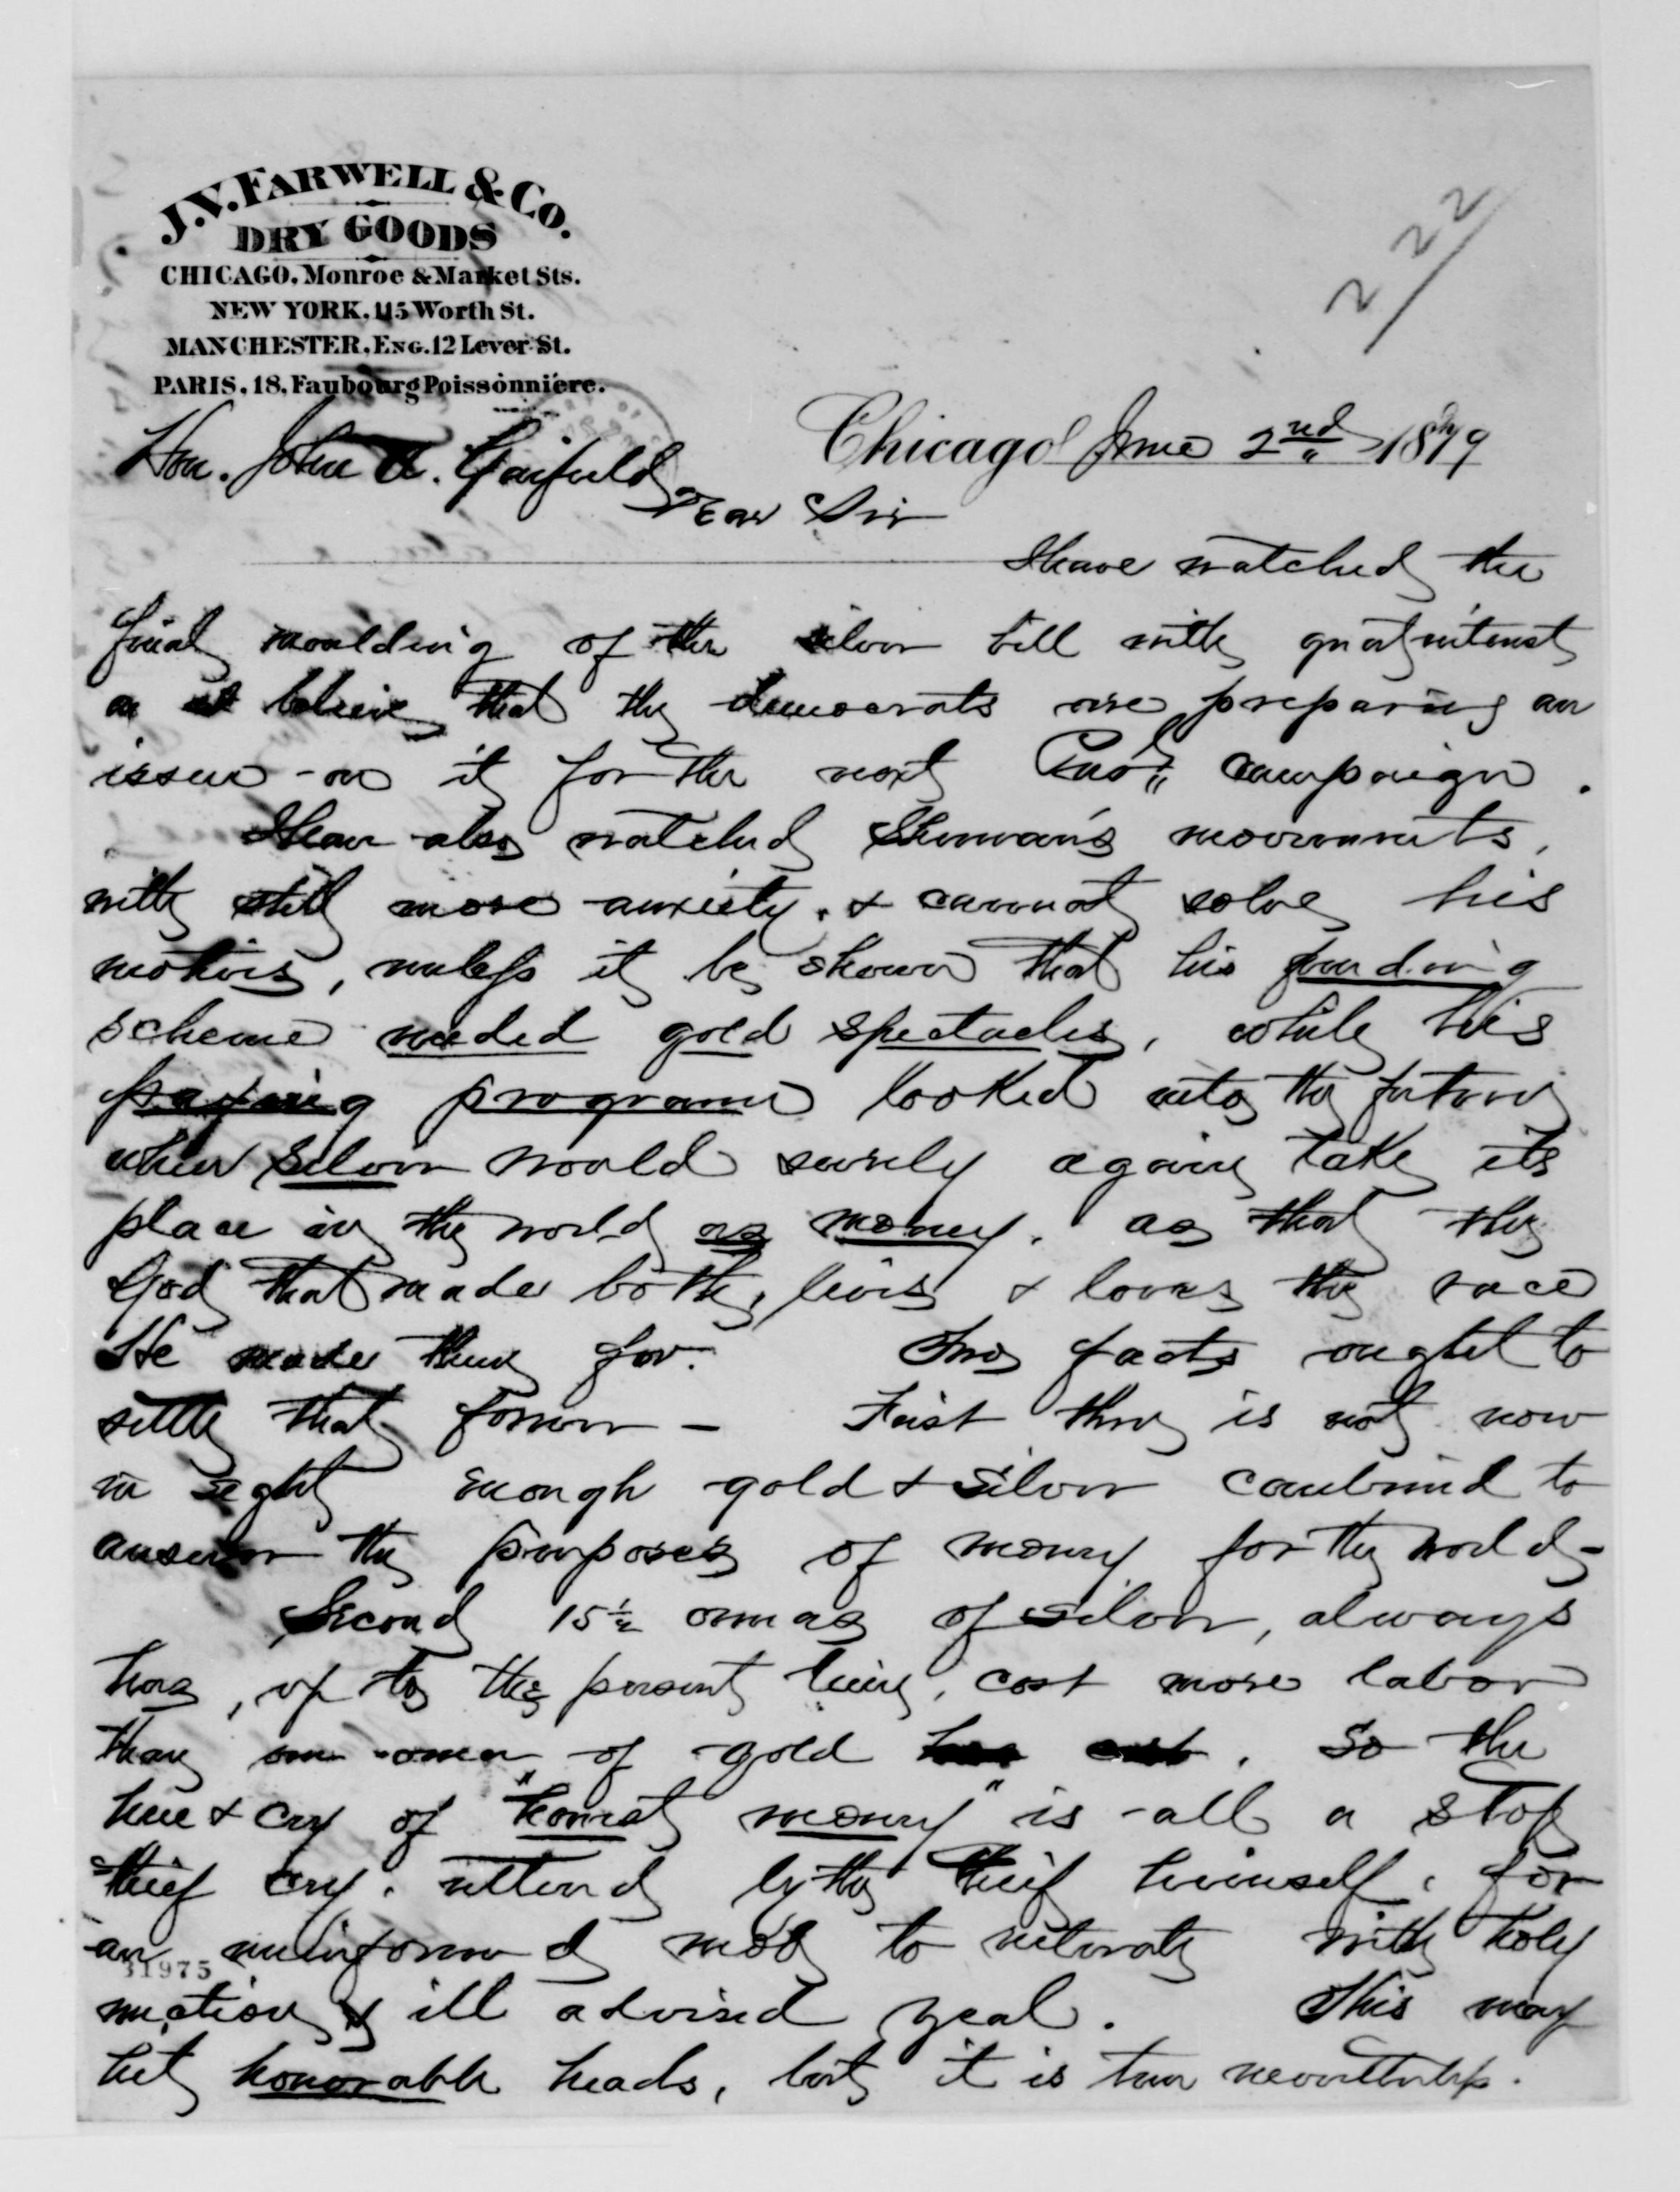 J.V. FARWELL & CO.
DRY GOODS
CHICAGO, Monroe & Market Sts.
NEW YORK, 115 Worth St.
MANCHESTER, ENG. 12 Lever St.
PARIS, 18, Faubourg Poissonniere.
222
Chicago June 2nd 1879
Hon. John A. Garfield
Dear Sir
I have watched the
final moulding of the silver bill with great interest
as I believe that the democrats are preparing an
issue on it for the next campaign.
I have also watched Sherman's movements,
with still more anxiety, & cannot solve his
motives, unless it be shown that his funding
scheme needed gold spectacles, while his
paying programe looked into the future
when silver would surely again take its
place in the world as money. as that the
God that made both, lives & loves the race
He made them for. Two facts ought to
settle that forever - First there is not now
in sight enough gold & silver combined to
answer the purposes of money for the world -
Second 15½ ounces of silver, always
has, up to the present time, cost more labor
than one ounce of gold has cost. So the
hue & cry of "honest money" is all a stop
thief cry, uttered by the thief himself, for
an uninformed mob to reiterate with holy
unction & ill advised zeal. This may
31975
hit honorable heads, but it is true nevertheless.